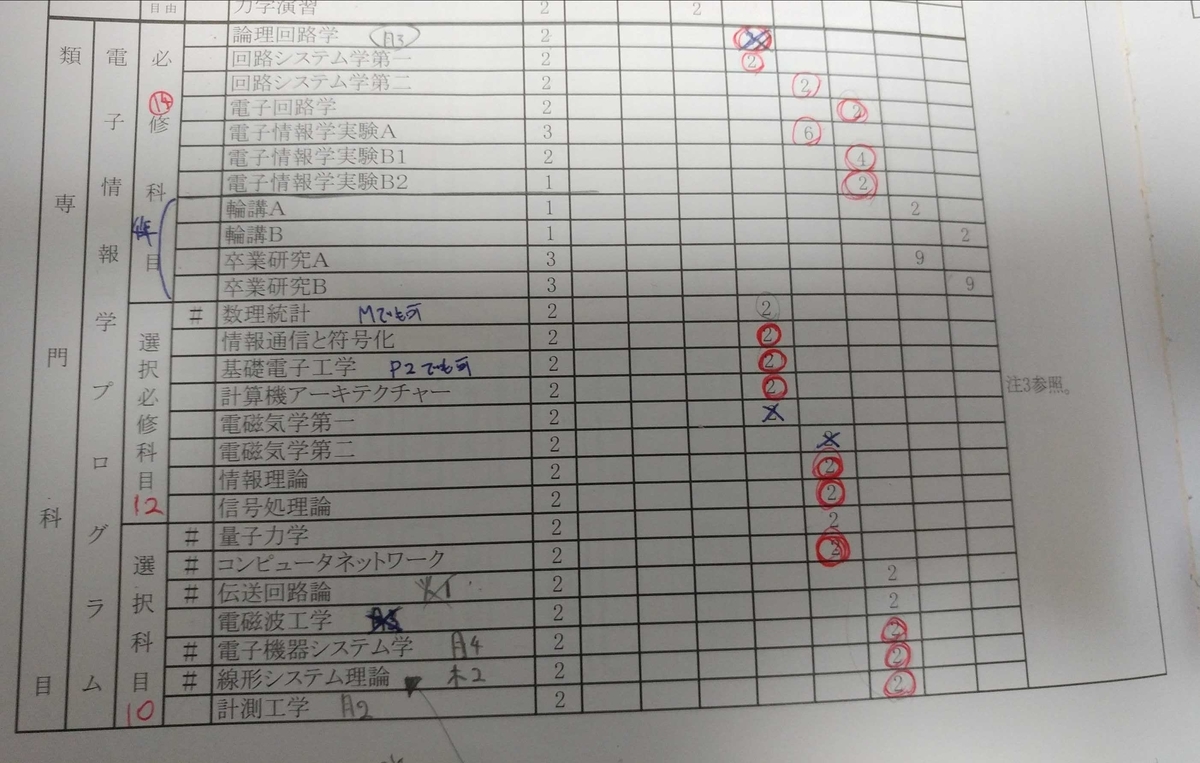 自由 力学演習 2 2
論理回路学 月3 2
回路システム学第一 2 2
回路システム学第二 2 2
電子回路学 2 2
電子情報学実験A 3 6
電子情報学実験B1 2 4
電子情報学実験B2 1 2
輪講A 1 2
輪講B 1 2
卒業研究A 3 9
卒業研究B 3 9
# 数理統計 Mでも可 2 2
情報通信と符号化 2 2
基礎電子工学 P2でも可 2 2
計算機アーキテクチャー 2 2
電磁気学第一 2
電磁気学第二 2
情報理論 2 2
信号処理論 2 2
# 量子力学 2 2
# コンピュータネットワーク 2 2
# 伝送回路論 2 2
電磁波工学 2 2
# 電子機器システム学 月4 2 2
# 線形システム理論 木2 2 2
計測工学 月2 2 2
類専門科目
電子情報学プログラム
必修科目
14
選択必修科目
12
選択科目
10
注3参照。